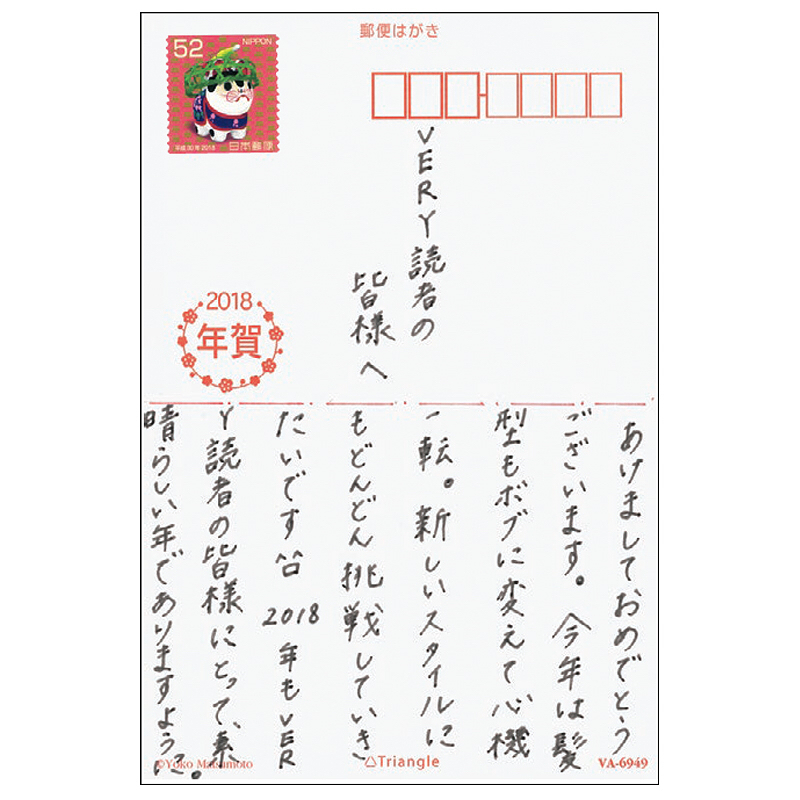 郵便はがき
52
NIPPON
平成30年 2018
日本郵便
VERY読者の
皆様へ
2018
年賀
あけましておめでとう
ございます。今年は髪
型もボブに変えて心機
一転。新しいスタイルに
もどんどん挑戦していき
たいです 2018年もVER
Y読者の皆様にとって、素
晴らしい年でありますように。
©Yoko Matsumoto
△Triangle
VA-6949